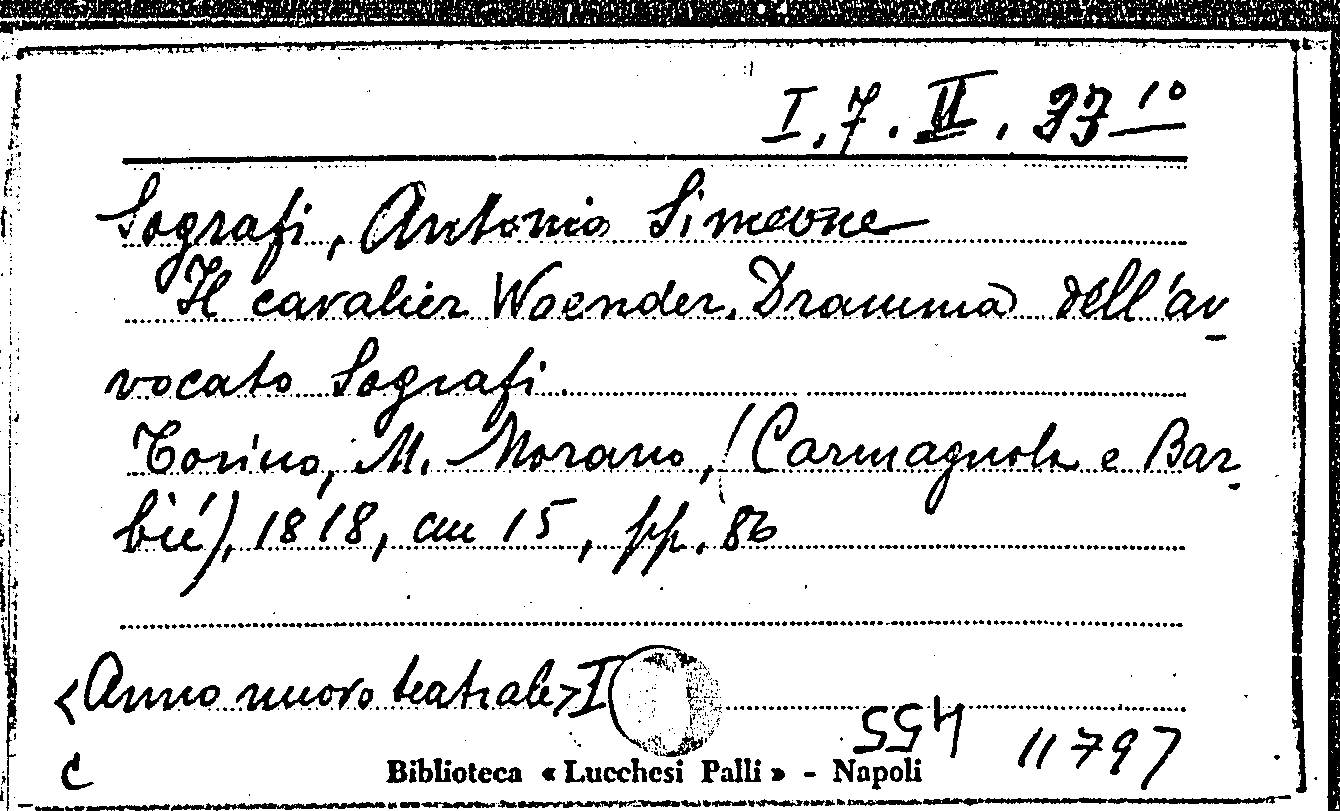 I. 7. II. 37 10
Sografi, Antonio Simeone
Il cavalier Woender. Dramma dell'av
vocato Sografi.
Torino, M. Morano, (Carmagnola e Bar
bié), 1818, cm 15, pp. 86
<Anno nuovo teatrale> I
455
11797
C
Biblioteca « Lucchesi Palli » - Napoli